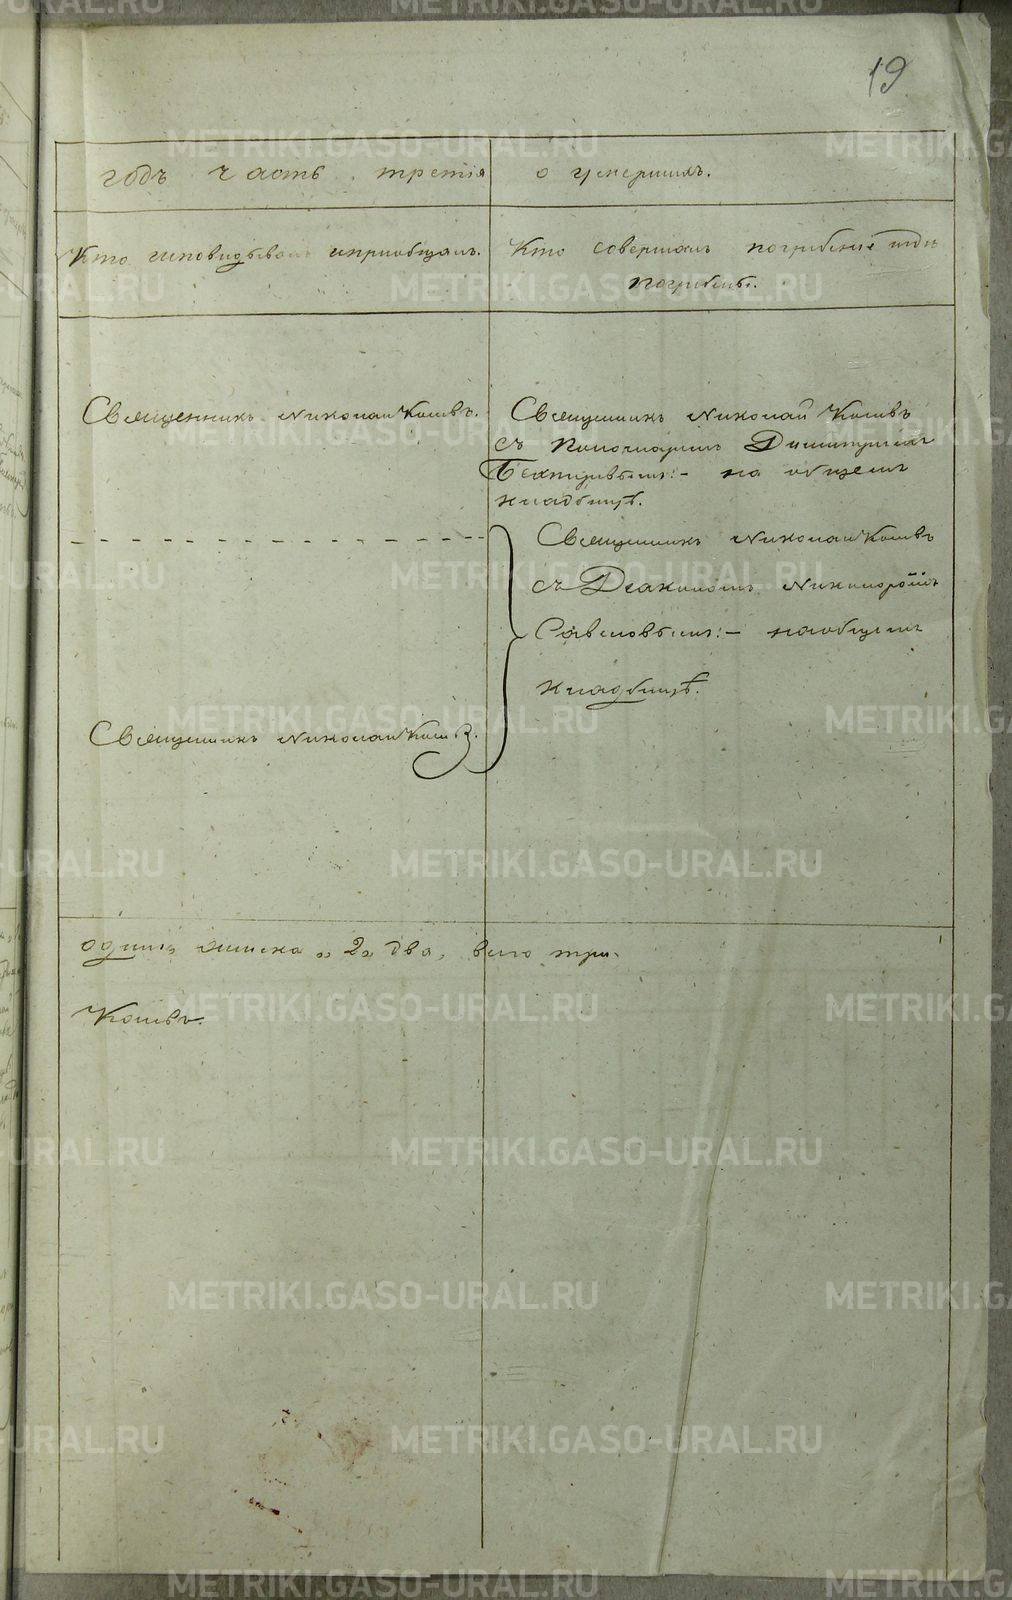 19
годъ часть третія о умершихъ.
Кто исповидывалъ и приобщалъ.
Кто совершалъ погребеніе и гдѣ
погребены.
Священникъ Николай
Священникъ Николай
съ Пономаремъ Димитріемъ
на общемъ
кладбищѣ.
Священникъ Николай
съ Діакономъ Никифоромъ
на общемъ
кладбищѣ.
Священникъ Николай
одинъ, женска „2„ два, всего три.
METRIKI.GASO-URAL.RU